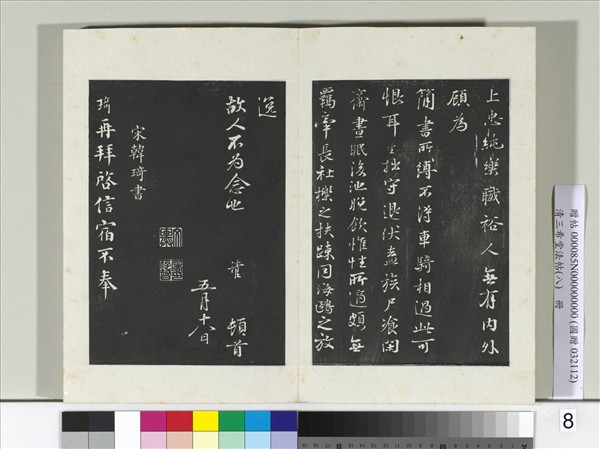 上恵純樂職裕人無有内外
顧為
簡書所縛不浮車騎相過此可
恨耳 拙守退伏盍族尸飡閑
齋晝眠後池晚飲惟性所適頗無
羈牢長社櫟之扶疎同海鷗之放
逸
故人不为念也
頓首
五月十八日
宋韓琦書
琦再拜啓信宿不奉
贈帖 000085N000000000 (國贈 032112)
清三希堂法帖(八) 冊
8